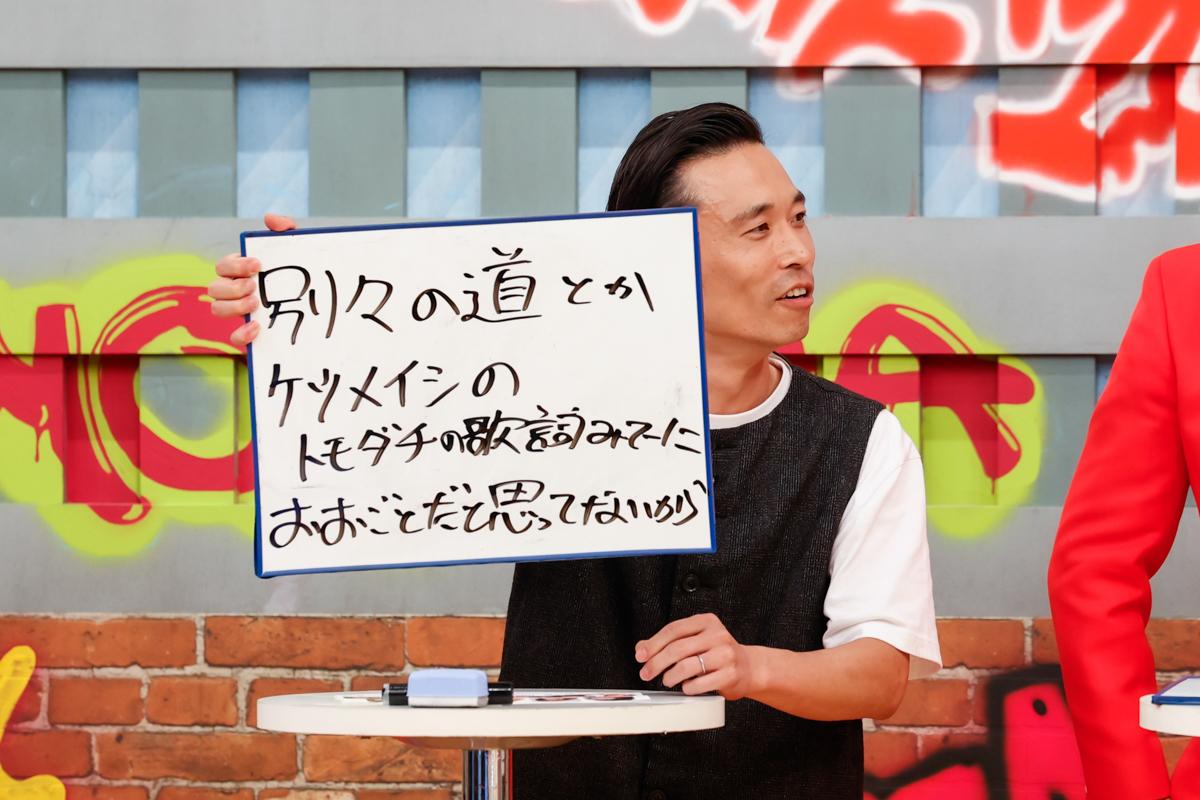 別々の道とか
ケツメイシの
トモダチの歌詞みてーに
おおごとだと思ってないから